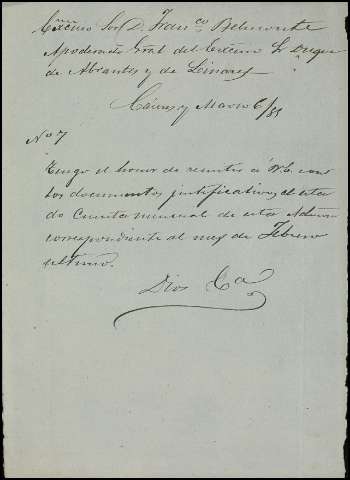 Excmo Sor D. Franco Belmonte
Apoderado Gral del Excmo Sr Duque
de Abrantes y de Linares
Cáceres y Marzo 6/88
No 7
Tengo el honor de remitir á V.E. con
los documentos justificativos el esta
do Cuenta mensual de esta Admon
correspondiente al mes de Febrero
último.
Dios Ca